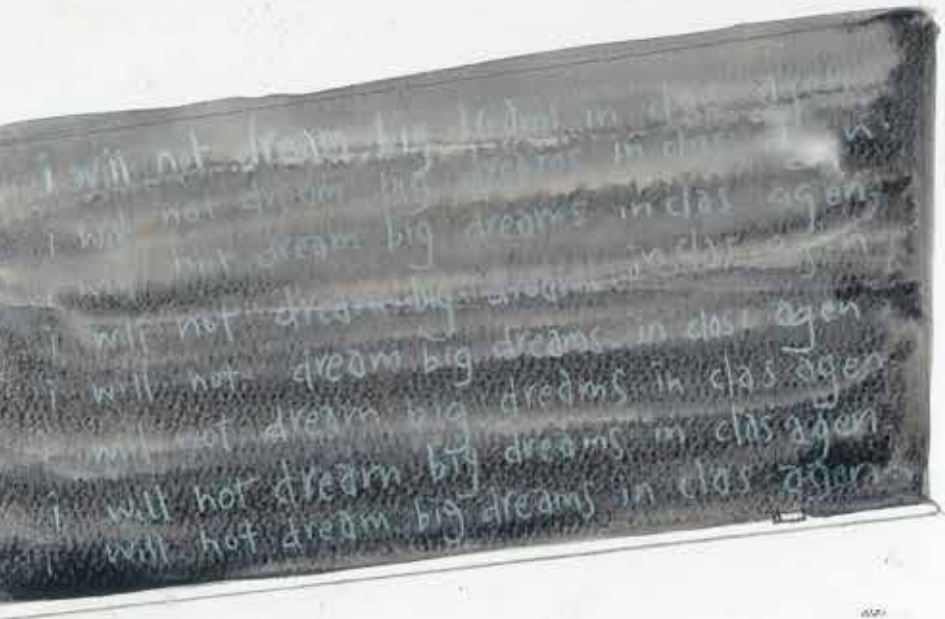 i will not dream big dreams in clas
i will not dream big dreams in clas
i will not dream big dreams in clas agen
i will not dream big dreams in clas agen
i will not dream big dreams in clas agen
i will not dream big dreams in clas agen
i will not dream big dreams in clas agen
i will not dream big dreams in clas agen